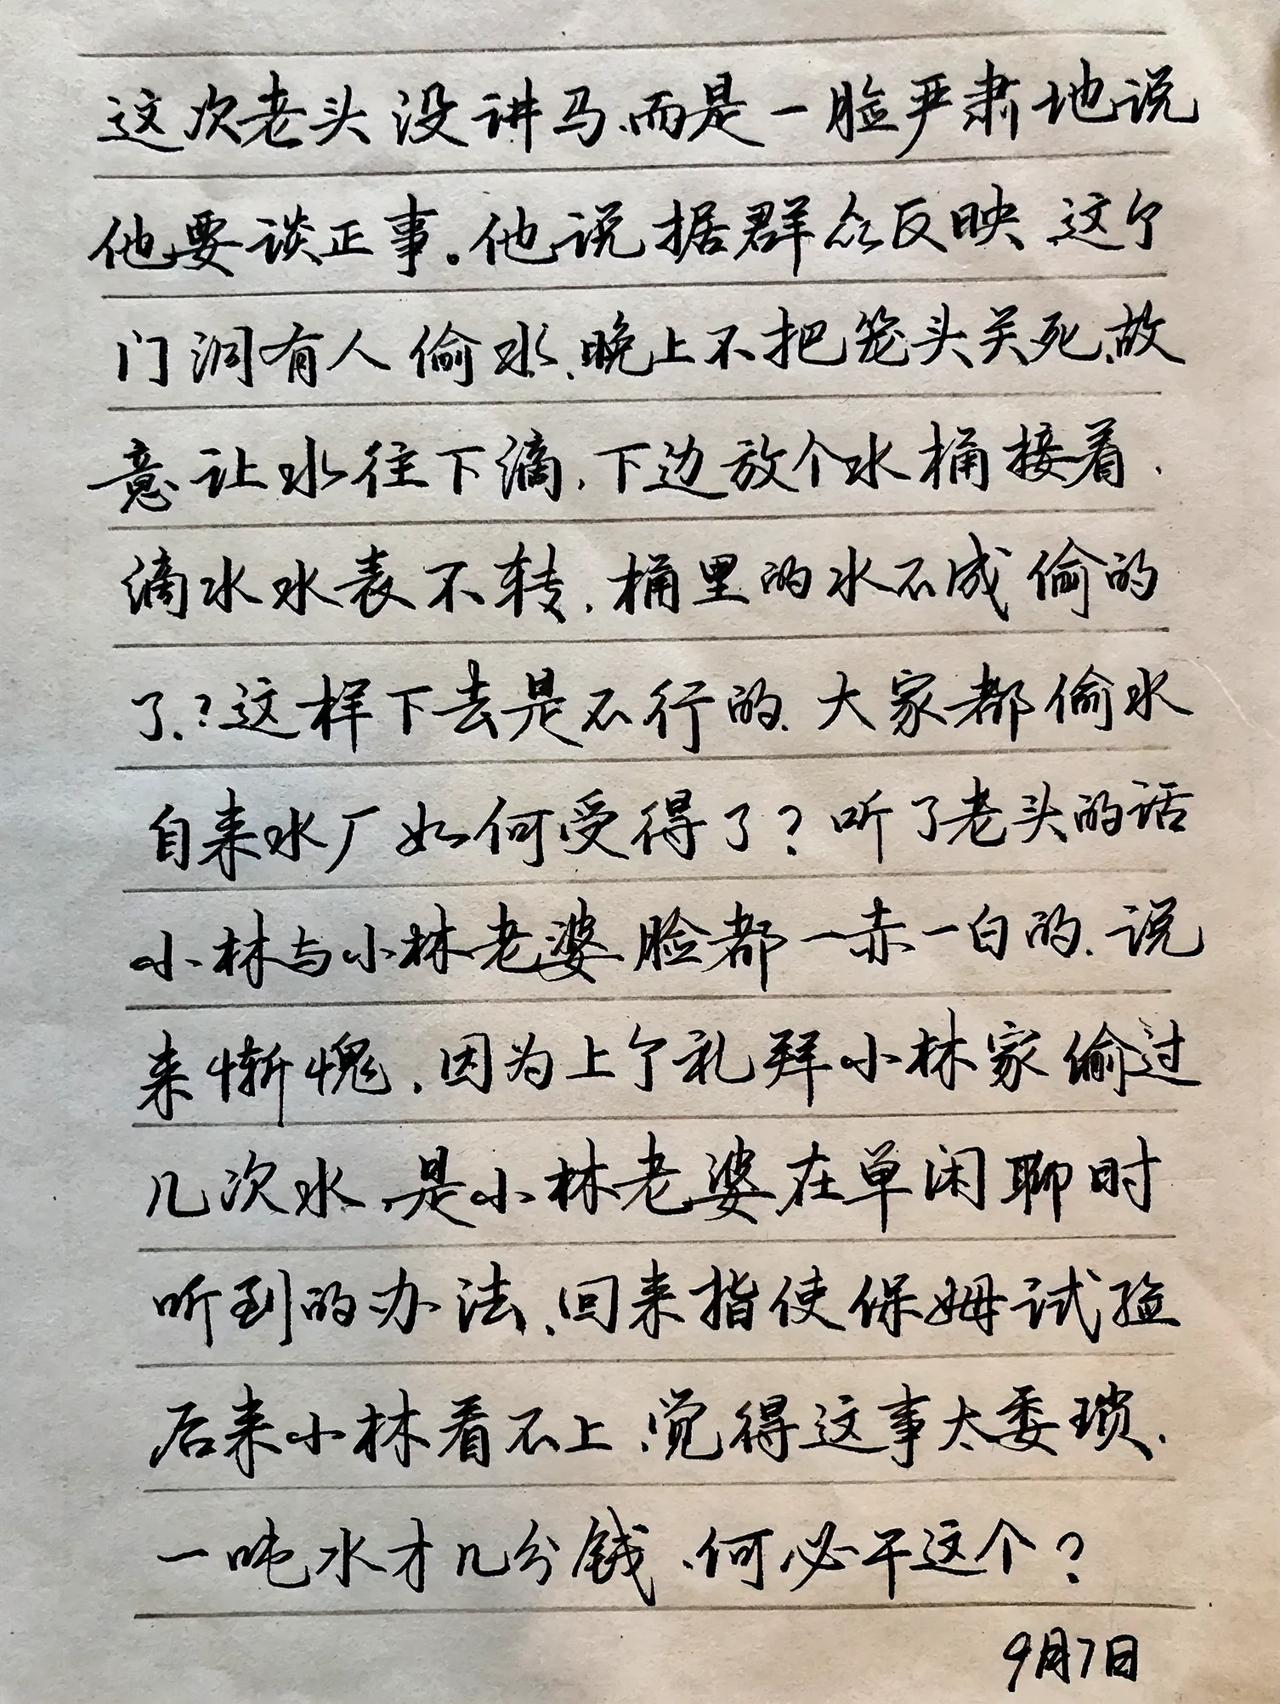 这次老头没讲马、而是一脸严肃地说
他要谈正事。他说据群众反映、这个
门洞有人偷水、晚上不把笼头关死、故
意让水往下滴,下边放个水桶接着、
滴水水表不转,桶里的水不成偷的
了?这样下去是不行的、大家都偷水
自来水厂如何受得了?听了老头的话
小林与小林老婆脸都一赤一白的、说
来惭愧,因为上个礼拜小林家偷过
几次水、是小林老婆在单闲聊时
听到的办法、回来指使保姆试验
后来小林看不上、觉得这事太委琐、
一吨水才几分钱、何必干这个?
9月7日